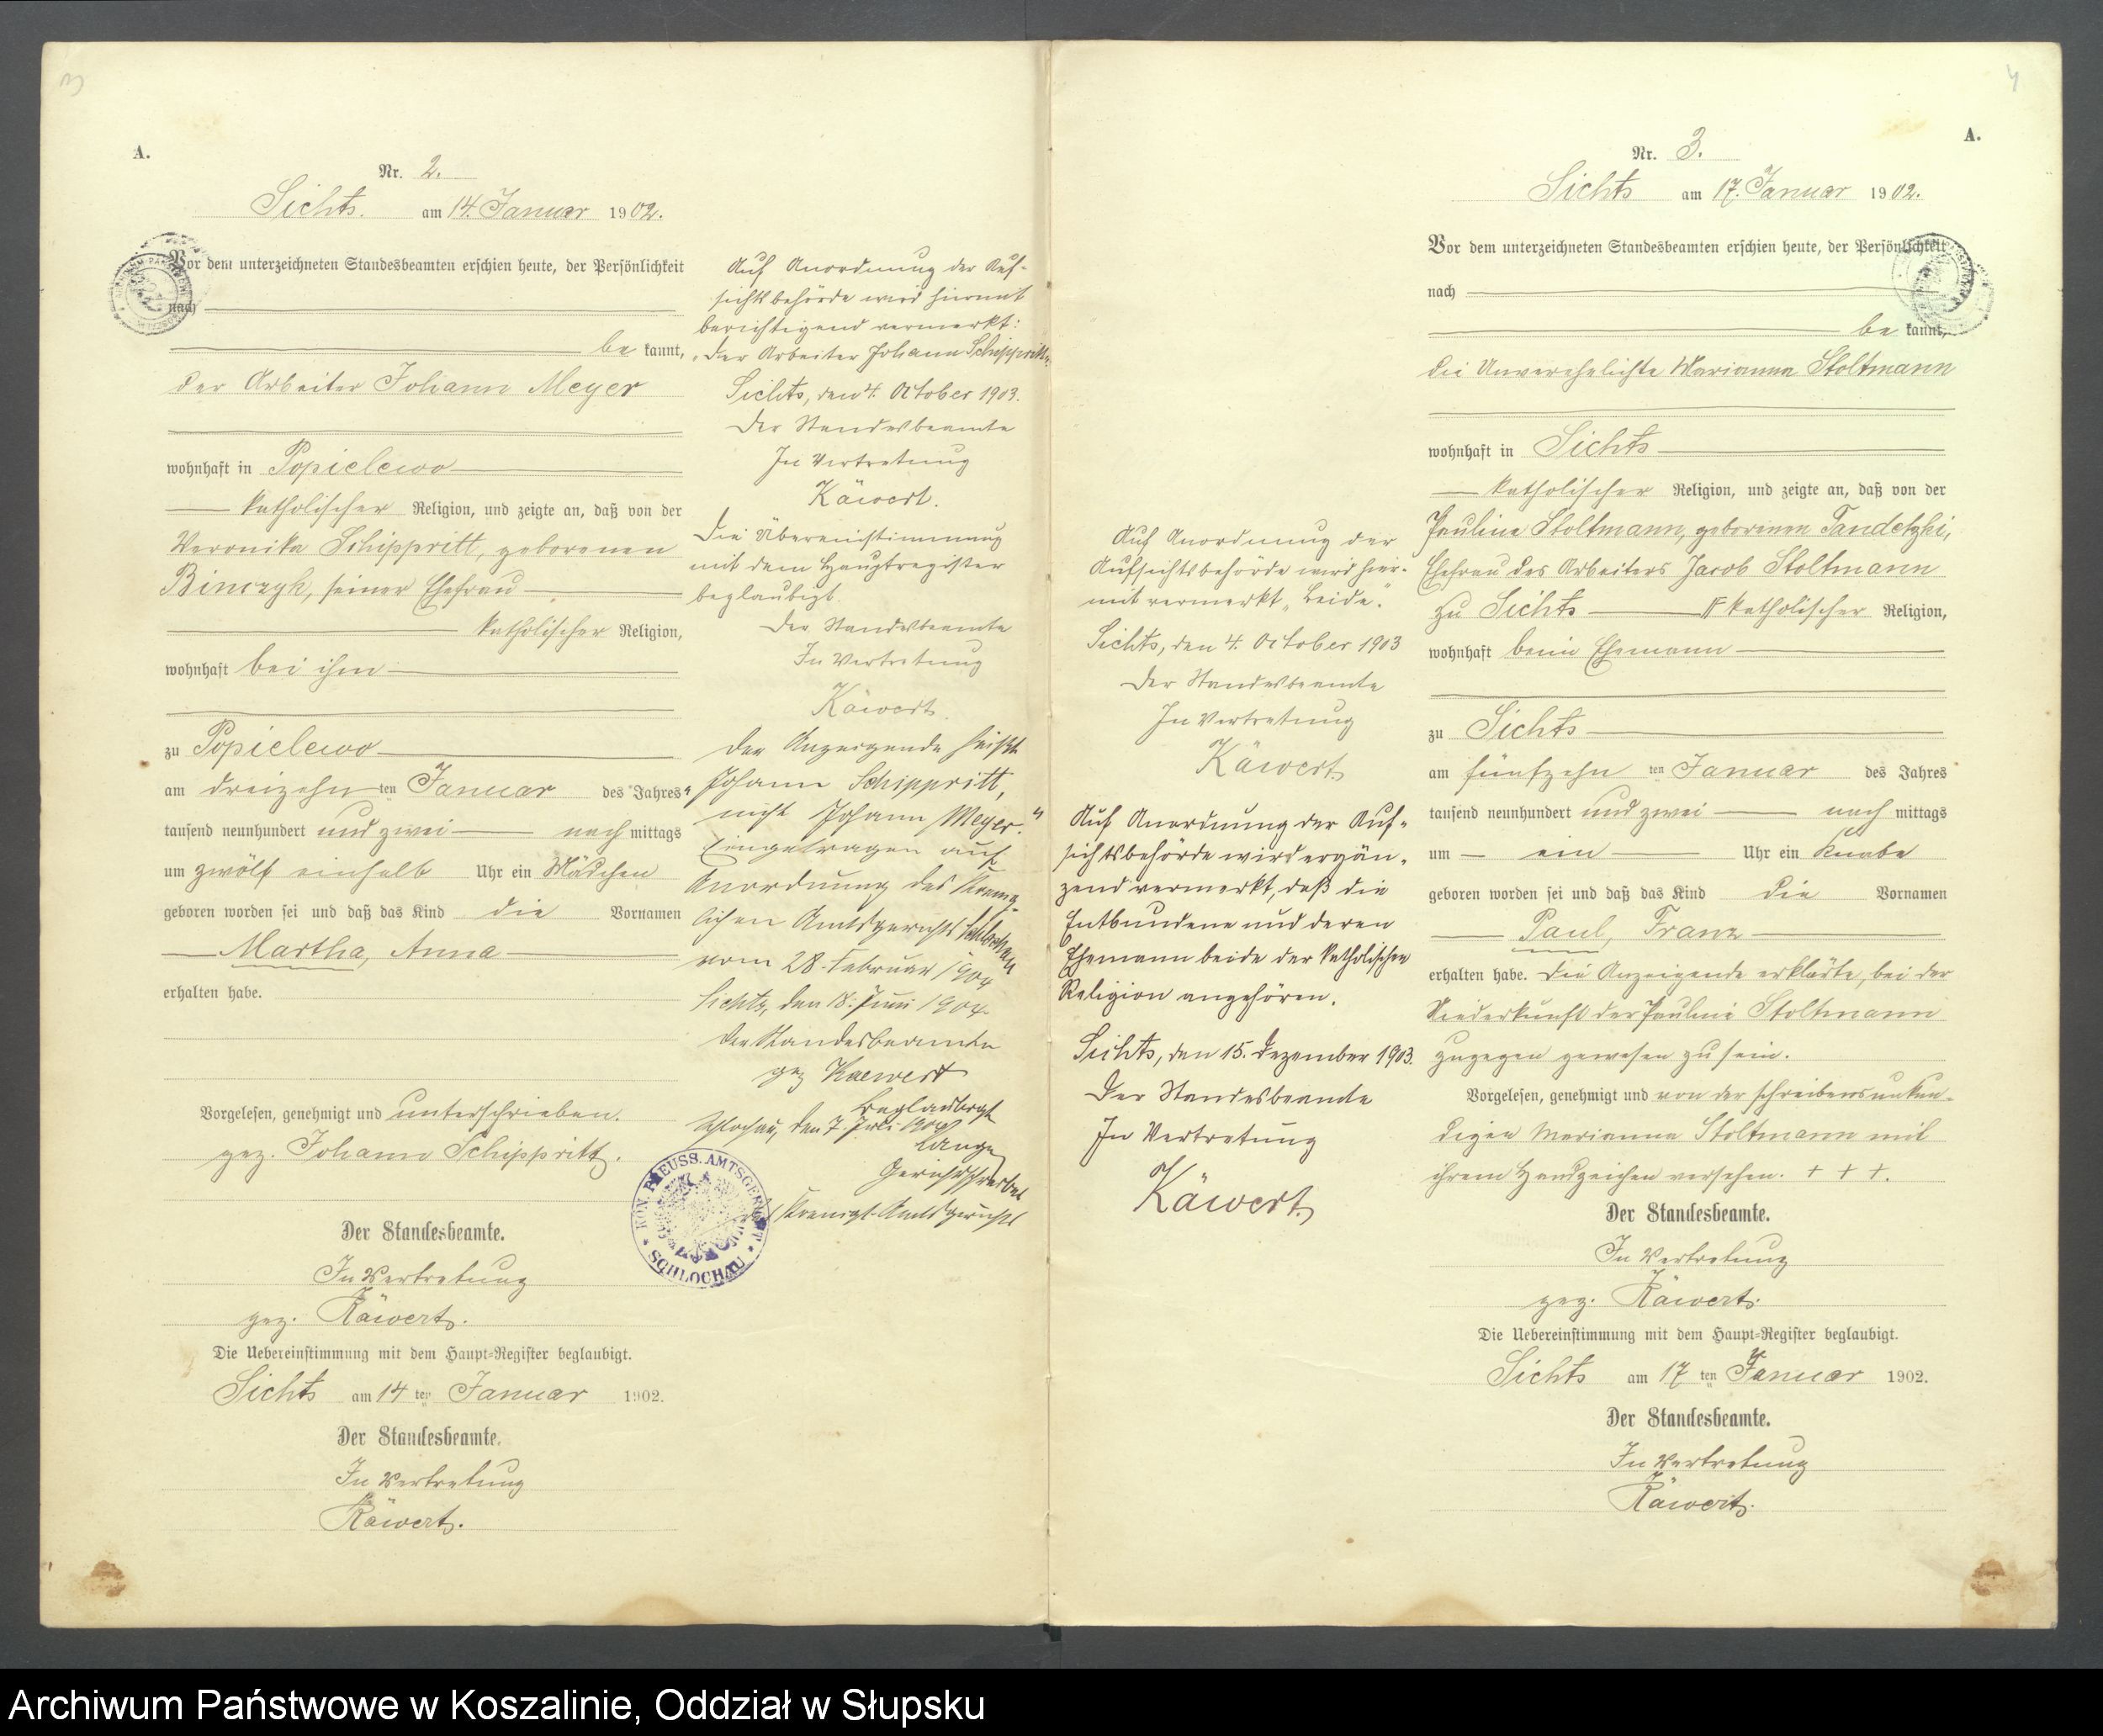 A.
Nr. 2.
Sichts. am 14. Januar 1902.
Vor dem unterzeichneten Standesbeamten erschien heute, der Persönlichkeit
nach
be kannt,
der Arbeiter Johann Meyer
wohnhaft in Popielewo
katholischer Religion, und zeigte an, daß von der
Veronika Schippritt, geborenen
Binczyk, seiner Ehefrau
katholischer Religion,
wohnhaft bei ihm
zu Popielewo
am dreizehn ten Januar des Jahres
tausend neunhundert und zwei nach mittags
um zwölf einhalb Uhr ein Mädchen
geboren worden sei und daß das Kind die Vornamen
Martha, Anna
erhalten habe.
Vorgelesen, genehmigt und unterschrieben.
gez. Johann Schippritt.
Der Standesbeamte.
In Vertretung
gez. Käwert.
Die Uebereinstimmung mit dem Haupt-Register beglaubigt.
Sichts am 14 ten Januar 1902.
Der Standesbeamte.
In Vertretung
Käwert.
Auf Anordnung der Auf-
sichtsbehörde wird hiermit
berichtigend vermerkt:
"der Arbeiter Johann Schippritt".
Sichts, den 4. October 1903.
Der Standesbeamte
In Vertretung
Käwert.
Die Übereinstimmung
mit dem Hauptregister
beglaubigt.
Der Standesbeamte
In Vertretung
Käwert.
"Der Anzeigende heißt
Johann Schippritt,
nicht Johann Meyer."
Eingetragen auf
Anordnung des Koenig-
lichen Amtsgerichts Schlochau
vom 28. Februar 1904
Sichts, den 18. Juni 1904.
Der Standesbeamte
gez Kaewert
Beglaubigt
Schlochau, den 7. Juli 1904
Lange
Gerichtsschreiber
des Koenigl. Amtsgerichts
KÖN. PREUSS. AMTSGERICHT
SCHLOCHAU
Auf Anordnung der
Aufsichtsbehörde wird hier-
mit vermerkt "beide".
Sichts, den 4. October 1903
Der Standesbeamte
In Vertretung
Käwert
Auf Anordnung der Auf-
sichtsbehörde wird ergän-
zend vermerkt, daß die
Entbundene und deren
Ehemann beide der katholischen
Religion angehören.
Sichts, den 15. Dezember 1903.
Der Standesbeamte
In Vertretung
Käwert.
4
A.
Nr. 3.
Sichts am 17. Januar 1902.
Vor dem unterzeichneten Standesbeamten erschien heute, der Persönlichkeit
nach
be kannt,
die Unverehelichte Marianna Stoltmann
wohnhaft in Sichts
katholischer Religion, und zeigte an, daß von der
Pauline Stoltmann, geborenen Tandetzki,
Ehefrau des Arbeiters Jacob Stoltmann
zu Sichts katholischer Religion,
wohnhaft beim Ehemann
zu Sichts
am fünfzehn ten Januar des Jahres
tausend neunhundert und zwei nach mittags
um ein Uhr ein Knabe
geboren worden sei und daß das Kind die Vornamen
Paul, Franz
erhalten habe. Die Anzeigende erklärte, bei der
Niederkunft der Pauline Stoltmann
zugegen gewesen zu sein.
Vorgelesen, genehmigt und von der schreibensunkun-
digen Marianna Stoltmann mit
ihrem Handzeichen versehen. + + +.
Der Standesbeamte.
In Vertretung
gez. Käwert.
Die Uebereinstimmung mit dem Haupt-Register beglaubigt.
Sichts am 17 ten Januar 1902.
Der Standesbeamte.
In Vertretung
Käwert.
Archiwum Państwowe w Koszalinie, Oddział w Słupsku